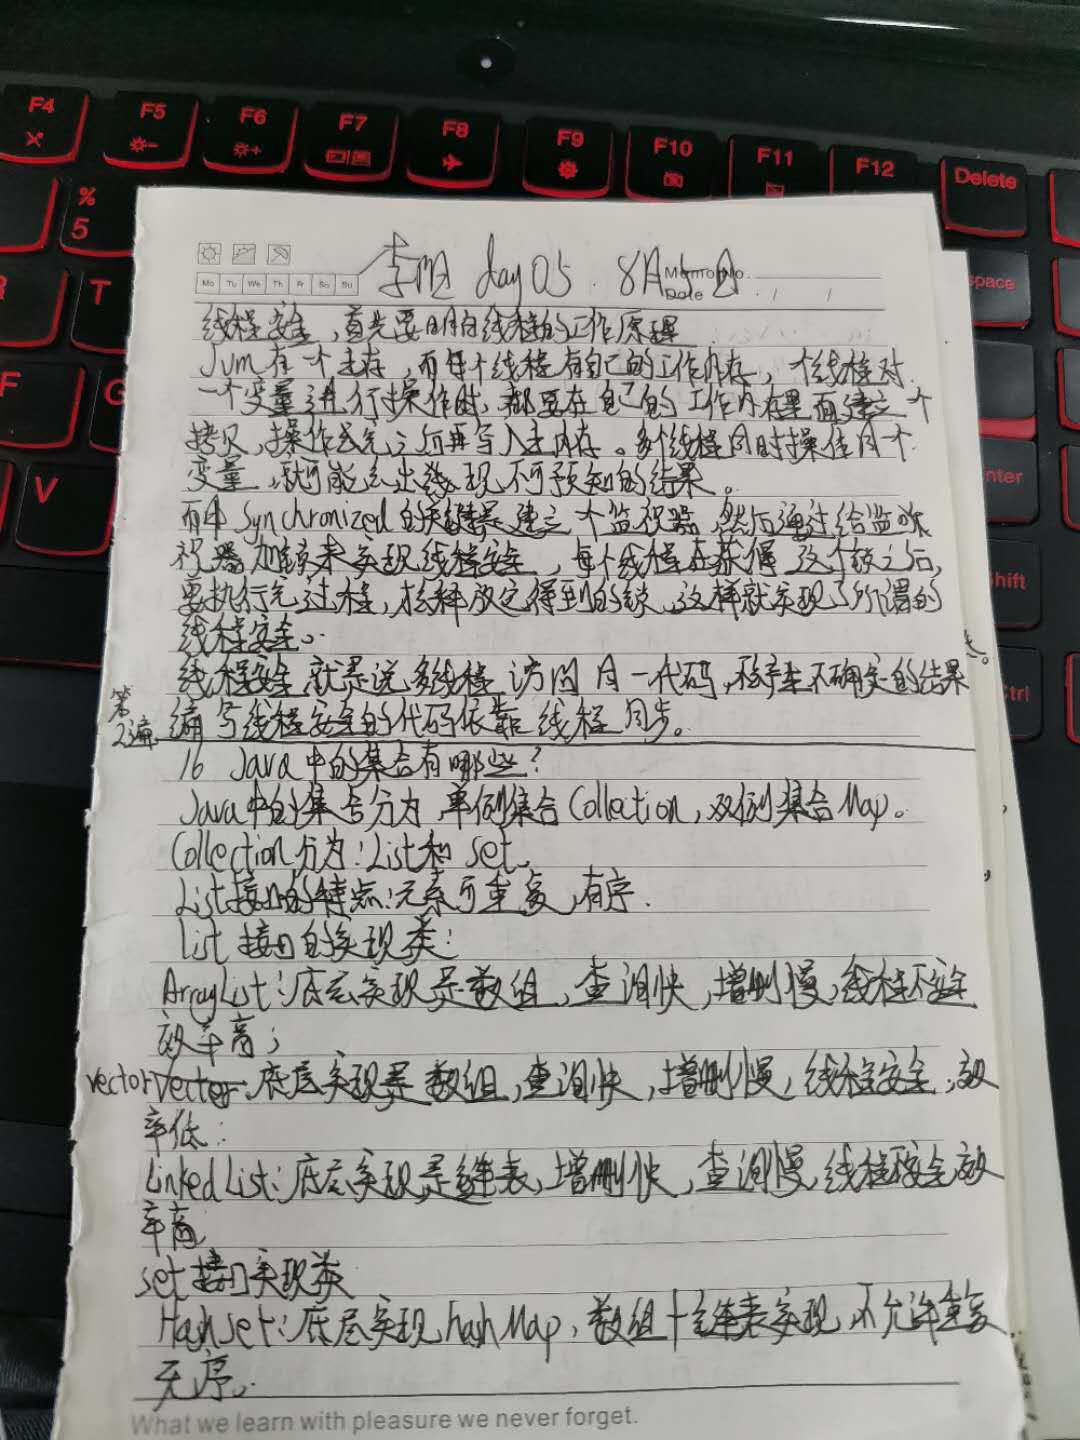 F4 F5 F6 F7 F8 F9 F10 F11 F12 Delete
%
5
T
F
G
V
space
nter
hift
trl
Mo Tu We Th Fr Sa Su
Memo No.
Date / /
李 day 05 8月5日
线程安全,首先要明白线程的工作原理
Jvm有一个主存,而每个线程有自己的工作内存,一个线程对
一个变量进行操作时,都要在自己的工作内存里面建立一个
拷贝,操作完之后再写入主内存。多个线程同时操作同一个
变量,就可能会出现不可预知的结果。
而用Synchronized的关键是建立一个监视器,然后通过给监
视器加锁来实现线程安全,每个线程在获得这个锁之后,
要执行完过程,释放它得到的锁,这样就实现了所谓的
线程安全。
线程安全就是说多线程访问同一代码,不会产生不确定的结果
第2遍
编写线程安全的代码依靠线程同步。
16 Java中的集合有哪些?
Java中的集合分为单例集合Collection,双例集合Map。
Collection分为:List和set。
List接口的特点:元素可重复,有序.
list接口的实现类:
ArrayList:底层实现是数组,查询快,增删慢,线程不安全
效率高;
vector:底层实现是数组,查询快,增删慢,线程安全,效
率低:
Linked List:底层实现是链表,增删快,查询慢,线程不安全,效
率高
set接口实现类
Hashset:底层实现hashMap,数组+链表实现,不允许重复
无序。
What we learn with pleasure we never forget.